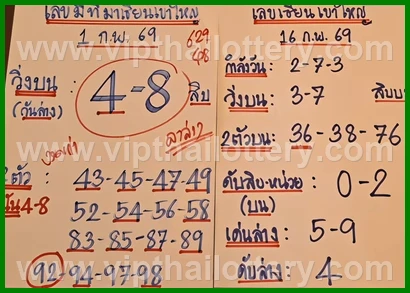 เลขมีที่มาเซียนเขาใหญ่
1 ก.พ. 69
629
608
วิ่งบน : 4-8 สิบ
(วันล่าง)
ลาล่าง
ตัว : 43-45-47-49
4-8 52-54-56-58
83-85-87-89
92-94-97-98
เลขเซียนเขาใหญ่
16 ก.พ. 69
กำลังวัน : 2-7-3
วิ่งบน : 3-7 สิบบน
2ตัวบน : 36-38-76
ดับสิบ-หน่วย : 0-2
(บน)
เด่นล่าง : 5-9
ดับล่าง : 4
www.vipthailottery.com
www.vipthailottery.com
www.vipthailottery.com